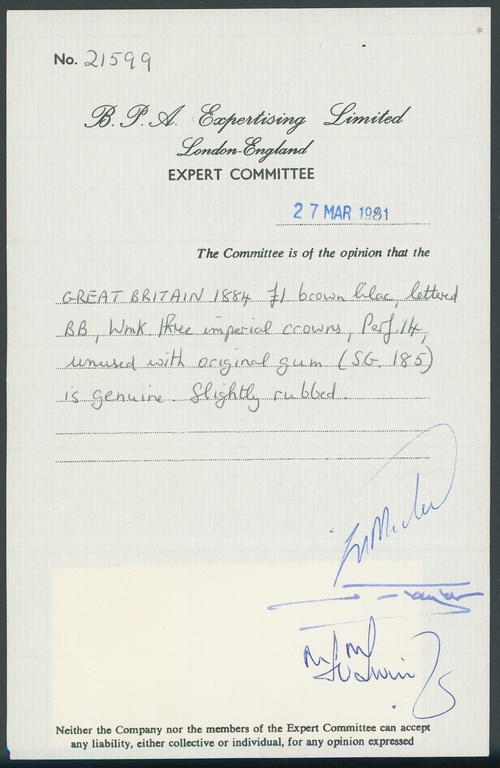 No. 21599
B. P. A. Expertising Limited
London-England
EXPERT COMMITTEE
27 MAR 1981
The Committee is of the opinion that the
GREAT BRITAIN 1884 £1 brown lilac, lettered
BB, Wmk three imperial crowns, Perf. 14,
unused with original gum (SG. 185)
is genuine. Slightly rubbed.
Neither the Company nor the members of the Expert Committee can accept
any liability, either collective or individual, for any opinion expressed